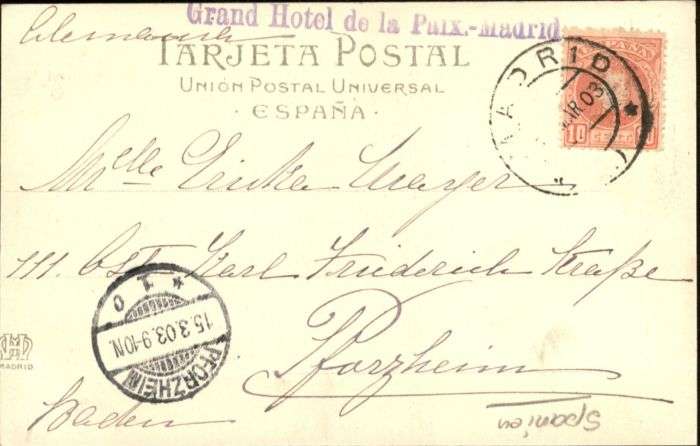 Grand Hotel de la Paix.-Madrid
Alemania
TARJETA POSTAL
UNIÓN POSTAL UNIVERSAL
· ESPAÑA ·
MADRID
MAR 03
10 CENTS 10
Mlle Erika Mayer
111. Öst. Karl Friedrich Straße
Pforzheim
Baden
PFORZHEIM
15.3.03.9-10N.
* 1 0
MADRID
Spanien